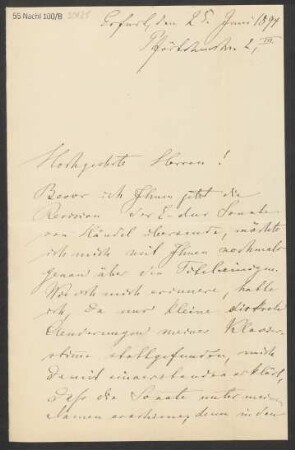 55 Nachl 100/B
Erfurt, den 25. Juni 1897
Hochgeehrte Herren!
Bevor ich Ihnen jetzt die
Revision der E-dur Sonate
von Händel übersende, möchte
ich mich mit Ihnen nochmals
genau über den
Wie ich mich erinnere, hatte
ich, da nur kleine
Aenderungen meiner Klavier
stimme stattgefunden, mich
damit einverstanden erklärt,
daß die Sonate unter meinem
Namen erscheine, denn in den